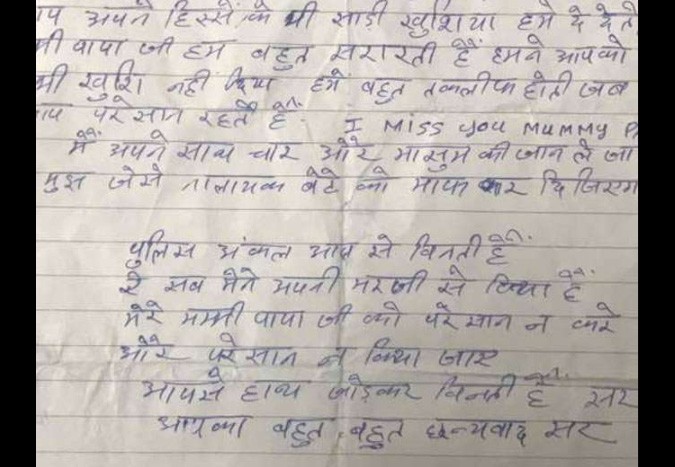 अपने हिस्से के भी सारी खुशिया हमे दे देते
पापा जी हम बहुत सरारती हैं हमने आपको
खुशि नही दिया हमें बहुत तकलीफ होती जब
परेसान रहते हैं. I MISS YOU MUMMY
मैं अपने साथ चार और मासुम की जान ले जा
मुझ जेसे नालायक बेटे को माफ कर दिजिएगा
पुलिस अंकल आप से विनती हैं.
ये सब मेने अपनी मरजी से किया हैं
मेरे मम्मी पापा जी को परेसान न करे
ओरे परेसान न किया जाए
आपसे हाथ जोड़कर विनती हैं सर
आपका बहुत बहुत धन्यवाद सर